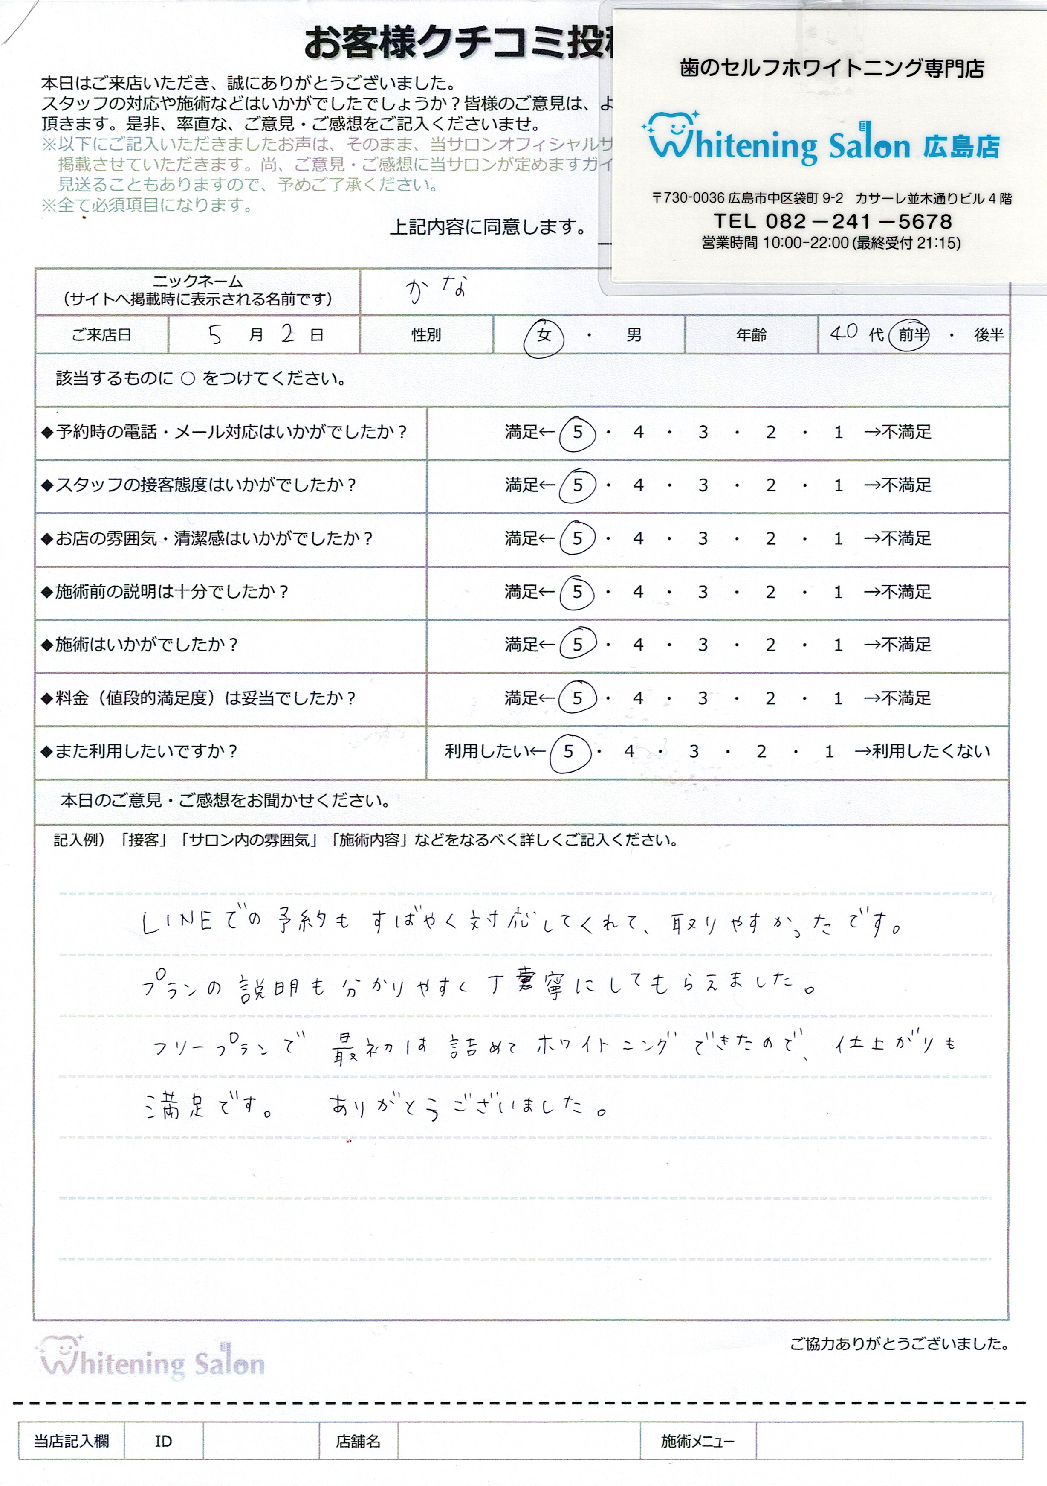 お客様クチコミ投稿
本日はご来店いただき、誠にありがとうございました。
スタッフの対応や施術などはいかがでしたでしょうか？皆様のご意見は、よ
頂きます。是非、率直な、ご意見・ご感想をご記入くださいませ。
※以下にご記入いただきましたお声は、そのまま、当サロンオフィシャルサ
掲載させていただきます。尚、ご意見・ご感想に当サロンが定めますガイ
見送ることもありますので、予めご了承ください。
※全て必須項目になります。
上記内容に同意します。
歯のセルフホワイトニング専門店
Whitening Salon 広島店
〒730-0036 広島市中区袋町 9-2 カサーレ並木通りビル 4 階
TEL 082－241－5678
営業時間 10:00-22:00 (最終受付 21:15)
ニックネーム
（サイトへ掲載時に表示される名前です） かな
ご来店日 5 月 2 日 性別 女 ・ 男 年齢 40 代 前半 ・ 後半
該当するものに ○ をつけてください。
◆予約時の電話・メール対応はいかがでしたか？ 満足← 5 ・ 4 ・ 3 ・ 2 ・ 1 →不満足
◆スタッフの接客態度はいかがでしたか？ 満足← 5 ・ 4 ・ 3 ・ 2 ・ 1 →不満足
◆お店の雰囲気・清潔感はいかがでしたか？ 満足← 5 ・ 4 ・ 3 ・ 2 ・ 1 →不満足
◆施術前の説明は十分でしたか？ 満足← 5 ・ 4 ・ 3 ・ 2 ・ 1 →不満足
◆施術はいかがでしたか？ 満足← 5 ・ 4 ・ 3 ・ 2 ・ 1 →不満足
◆料金（値段的満足度）は妥当でしたか？ 満足← 5 ・ 4 ・ 3 ・ 2 ・ 1 →不満足
◆また利用したいですか？ 利用したい← 5 ・ 4 ・ 3 ・ 2 ・ 1 →利用したくない
本日のご意見・ご感想をお聞かせください。
記入例）「接客」「サロン内の雰囲気」「施術内容」などをなるべく詳しくご記入ください。
LINEでの予約もすばやく対応してくれて、取りやすかったです。
プランの説明も分かりやすく丁寧にしてもらえました。
フリープランで最初は詰めてホワイトニングできたので、仕上がりも
満足です。 ありがとうございました。
Whitening Salon
ご協力ありがとうございました。
当店記入欄 ID 店舗名 施術メニュー